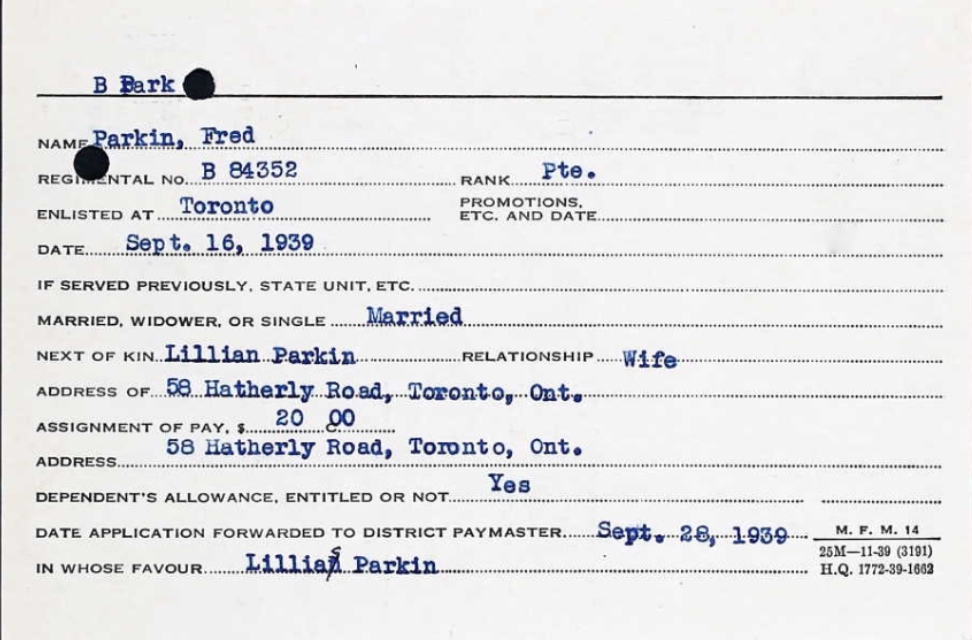 B Park
NAME Parkin, Fred
REGIMENTAL NO. B 84352 RANK Pte.
ENLISTED AT Toronto PROMOTIONS, ETC. AND DATE
DATE Sept. 16, 1939
IF SERVED PREVIOUSLY, STATE UNIT, ETC.
MARRIED, WIDOWER, OR SINGLE Married
NEXT OF KIN Lillian Parkin RELATIONSHIP Wife
ADDRESS OF 58 Hatherly Road, Toronto, Ont.
ASSIGNMENT OF PAY, $ 20 00
ADDRESS 58 Hatherly Road, Toronto, Ont.
DEPENDENT'S ALLOWANCE, ENTITLED OR NOT Yes
DATE APPLICATION FORWARDED TO DISTRICT PAYMASTER Sept. 28, 1939
IN WHOSE FAVOUR Lillias Parkin
M. F. M. 14
25M—11-39 (3191)
H.Q. 1772-39-1662